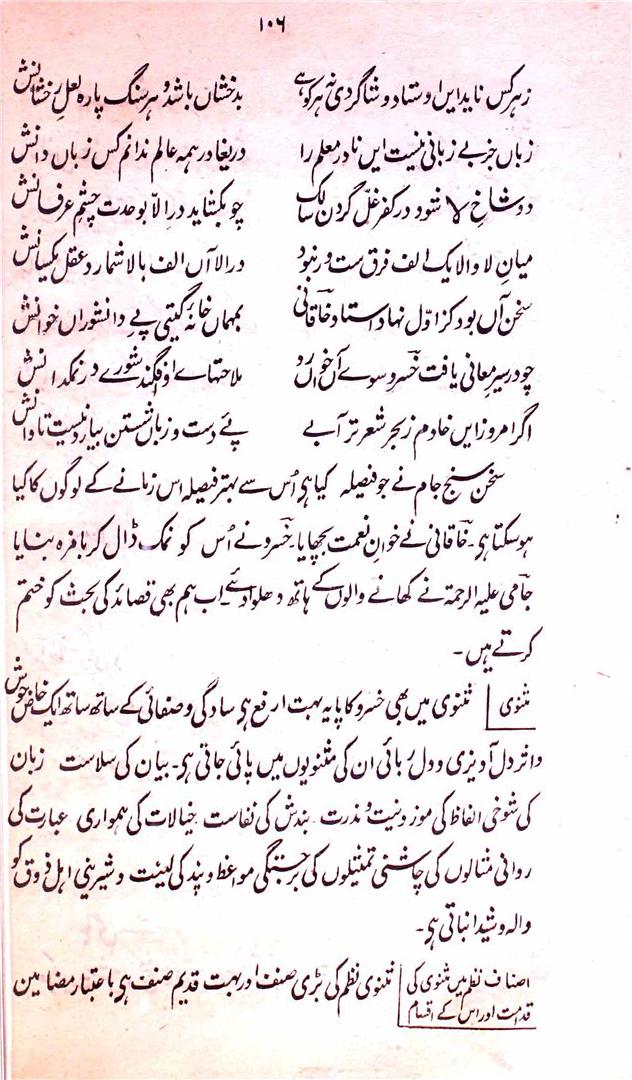 ۱۰۶
زہر کس ناید ایں اوستاد و شاگردی نہ ہر کوہے بدخشاں باشد و ہر سنگ پارہ لعلِ رخشانش
زباں جز بے زبانی نیست ایں نادر معلم را دریغا در ہمہ عالم ندانم کس زباں دانش
دو شاخِ لا شود در کفر غلِّ گردنِ سالک چو بکشاید در الا بوحدت چشمِ عرفانش
میانِ لا و الا یک الف فرق ست ور نبود در الا آں الف بالا شمارد عقل یکسانش
سخن آں بود کز اوّل نہاد استاد خاقانی بمہماں خانۂ گیتی پے دانشوراں خوانش
چو در سیرِ معانی یافت خسرو سوے آں خواں رہ ملاحتہاے او افگند شورے در نمکدانش
اگر امروز ایں خادم ز بحر شعر تر آبے پئے دست و زباں شستن بیارد نیست تاوانش
سخن سنج جام نے جو فیصلہ کیا ہی اُس سے بہتر فیصلہ اس زمانے کے لوگوں کا کیا
ہو سکتا ہی۔ خاقانی نے خوانِ نعمت بچھایا۔ خسرو نے اُس کو نمک ڈال کر بامزہ بنایا
جامی علیہ الرحمۃ نے کھانے والوں کے ہاتھ دھلوا دئے۔ اب ہم بھی قصائد کی بحث کو ختم
کرتے ہیں۔
مثنوی مثنوی میں بھی خسرو کا پایہ بہت ارفع ہی سادگی و صفائی کے ساتھ ساتھ ایک خاص جوش
و اثر دل آویزی و دل رُبائی ان کی مثنویوں میں پائی جاتی ہی۔ بیان کی سلاست زبان
کی شوخی الفاظ کی موزونیت و ندرت۔ بندش کی نفاست خیالات کی ہمواری عبارت کی
روانی مثالوں کی چاشنی تمثیلوں کی برجستگی مواعظ و پند کی لینت و شیرینی اہل ذوق کو
والہ و شیدا بناتی ہی۔
اصناف نظم میں مثنوی کی مثنوی نظم کی بڑی صنف اور بہت قدیم صنف ہی باعتبار مضامین
قدامت اور اس کے اقسام